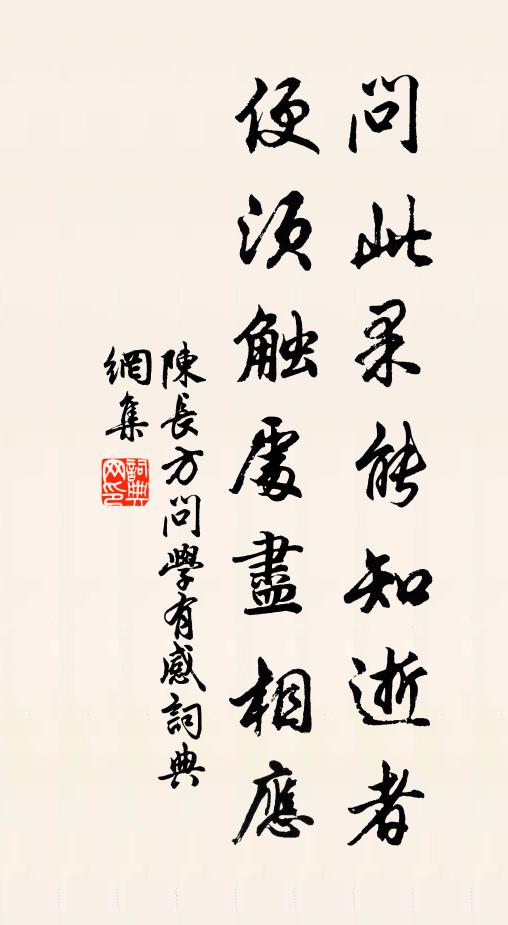 問此果能知逝者
便須触處盡相應
陳長方問學有感詞典
網集
詞典
网印